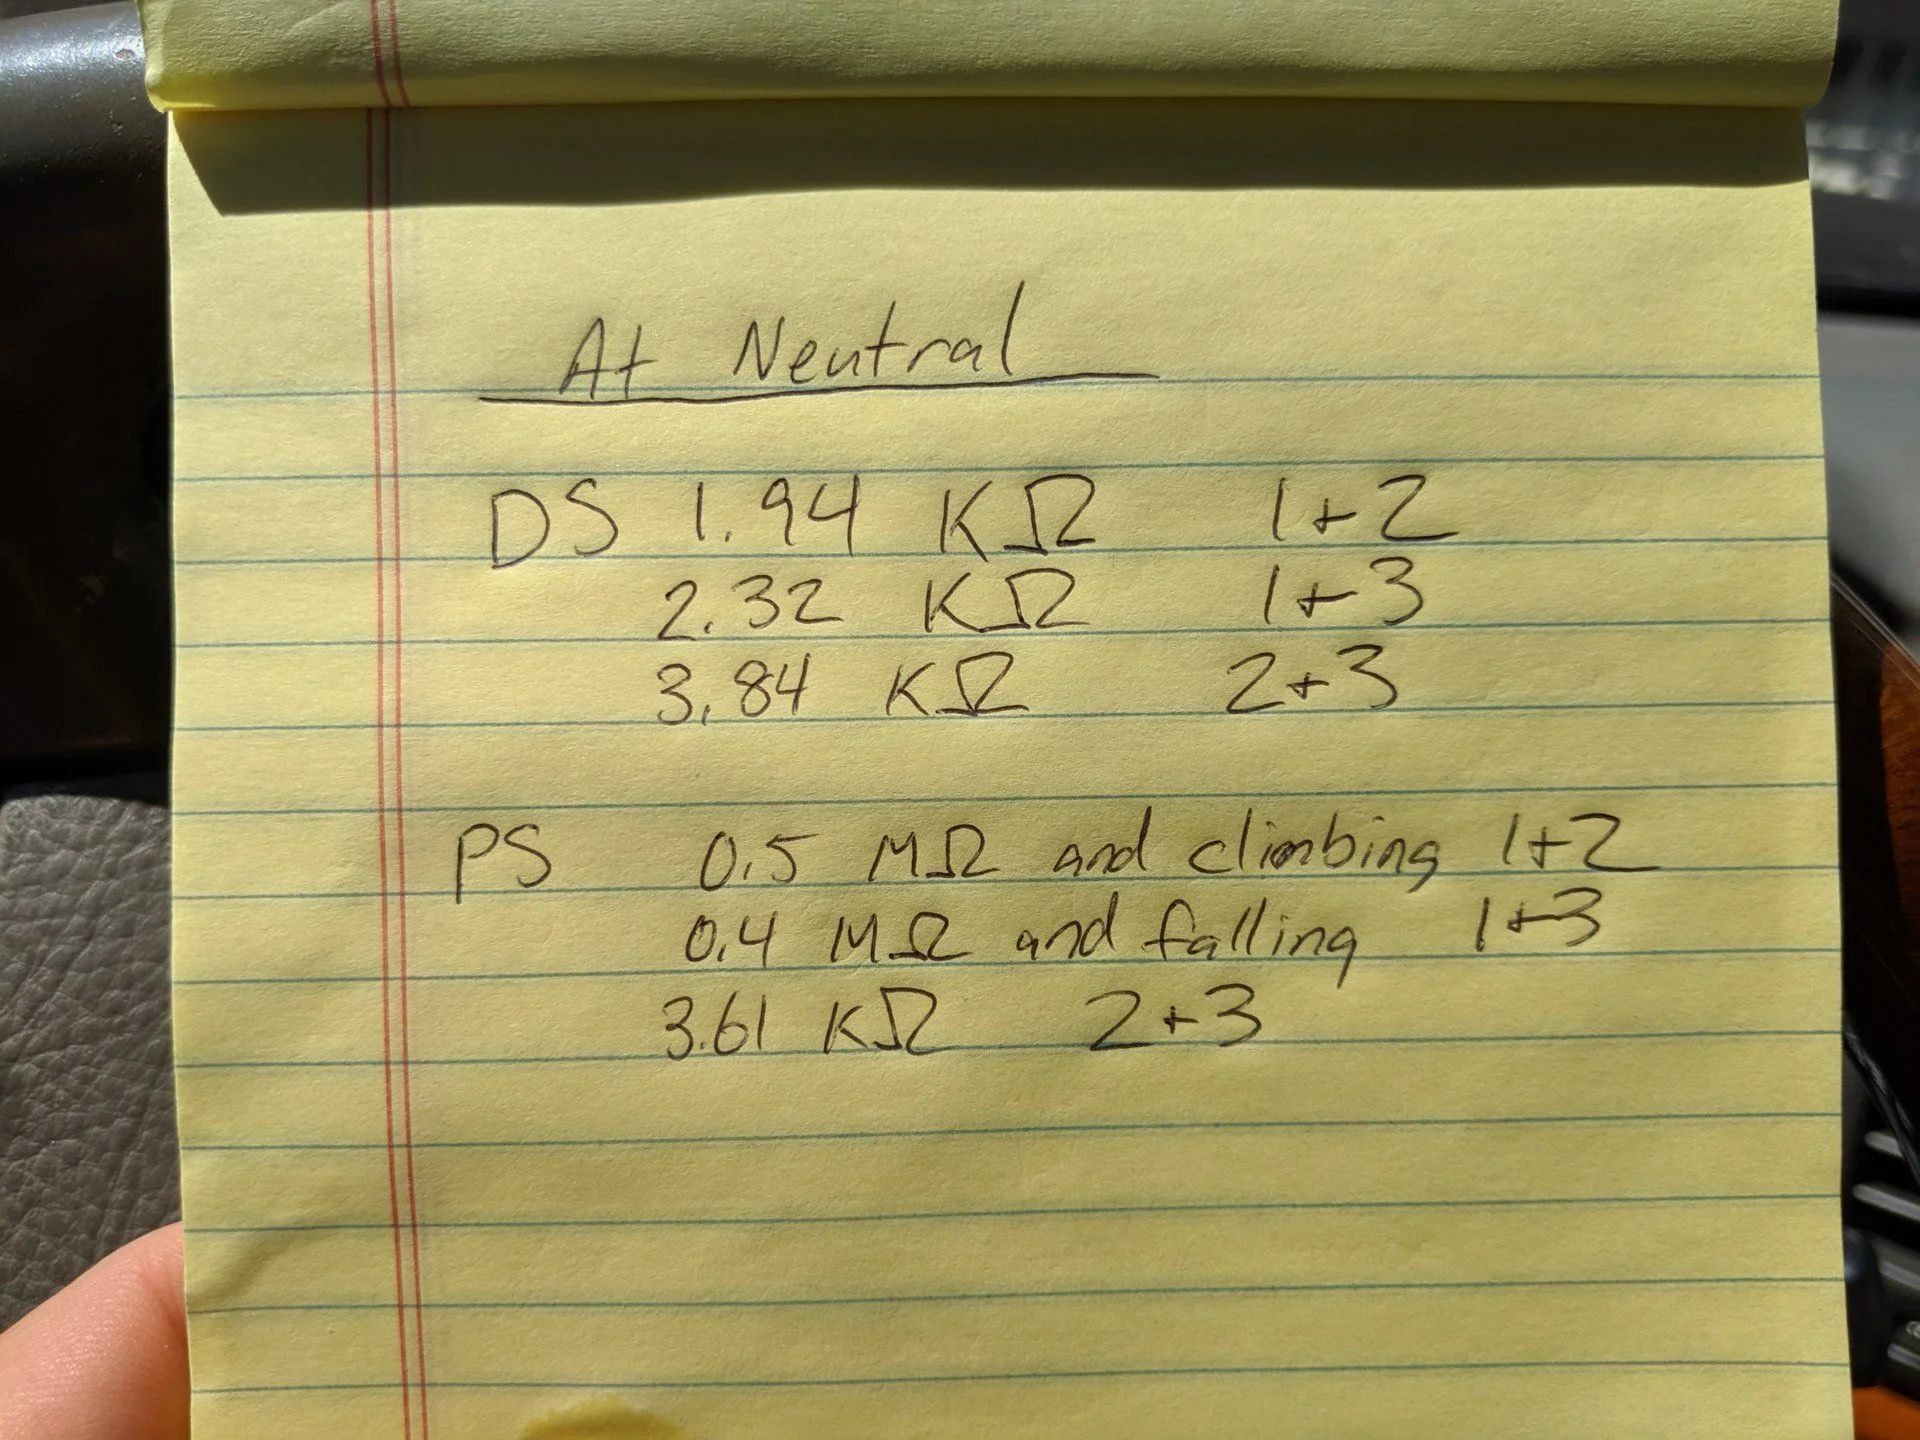 At Neutral
DS 1.94 KΩ 1+2
2.32 KΩ 1+3
3.84 KΩ 2+3
PS 0.5 MΩ and climbing 1+2
0.4 MΩ and falling 1+3
3.61 KΩ 2+3